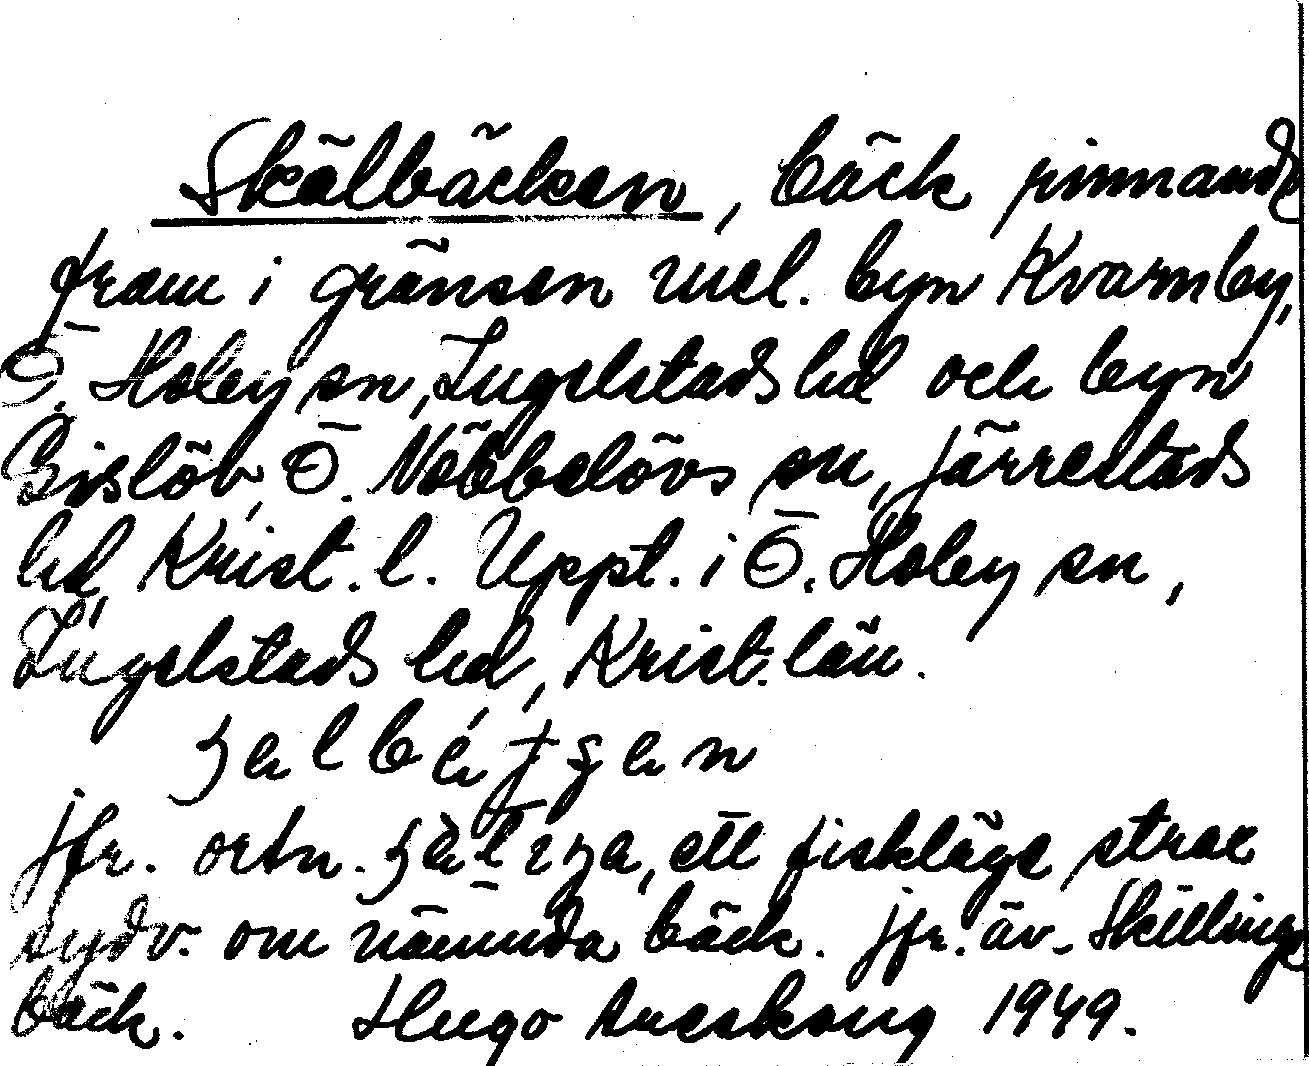 Skälbäcken, bäck rinnande
fram i gränsen mel. byn Kvarnby,
Ö. Hoby sn, Ingelstads hd och byn
Gislöv, Ö. Nöbbelövs sn, Järrestads
hd, Krist. l. Uppt. i Ö. Hoby sn,
Ingelstads hd, Krist. län.
jfr. ortn. ett fiskläge strax
sydv. om nämnda bäck. Jfr. äv. Skillinge
bäck. Hugo Areskoug 1949.